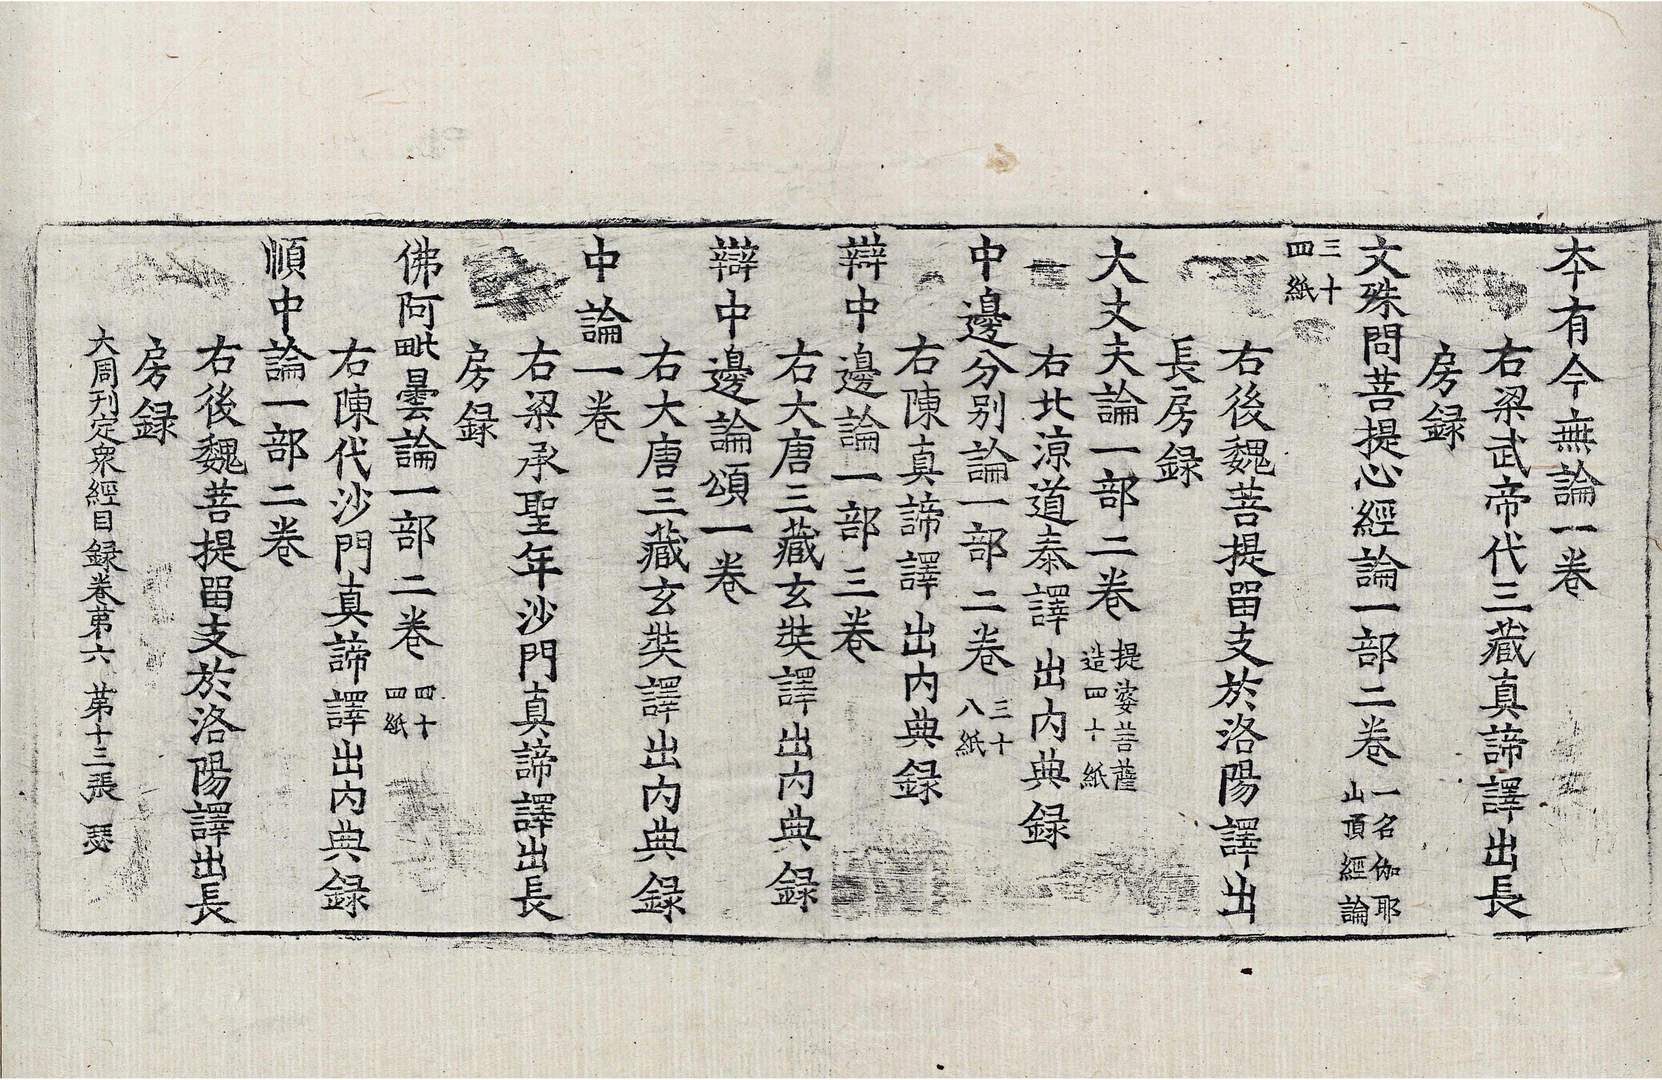 本有今無論一卷
右梁武帝代三藏真諦譯出長
房録
文殊問菩提心經論一部二卷 一名伽耶山頂經論
三十四紙
右後魏菩提留支於洛陽譯出
長房録
大丈夫論一部二卷 提婆菩薩造四十紙
右北涼道泰譯出内典録
中邊分别論一部二卷 三十八紙
右陳真諦譯出内典録
辯中邊論一部三卷
右大唐三藏玄奘譯出内典録
辯中邊論頌一卷
右大唐三藏玄奘譯出内典録
中論一卷
右梁承聖年沙門真諦譯出長
房録
佛阿毗曇論一部二卷 四十四紙
右陳代沙門真諦譯出内典録
順中論一部二卷
右後魏菩提留支於洛陽譯出長
房録
大周刊定衆經目録卷苐六 苐十三張 瑟